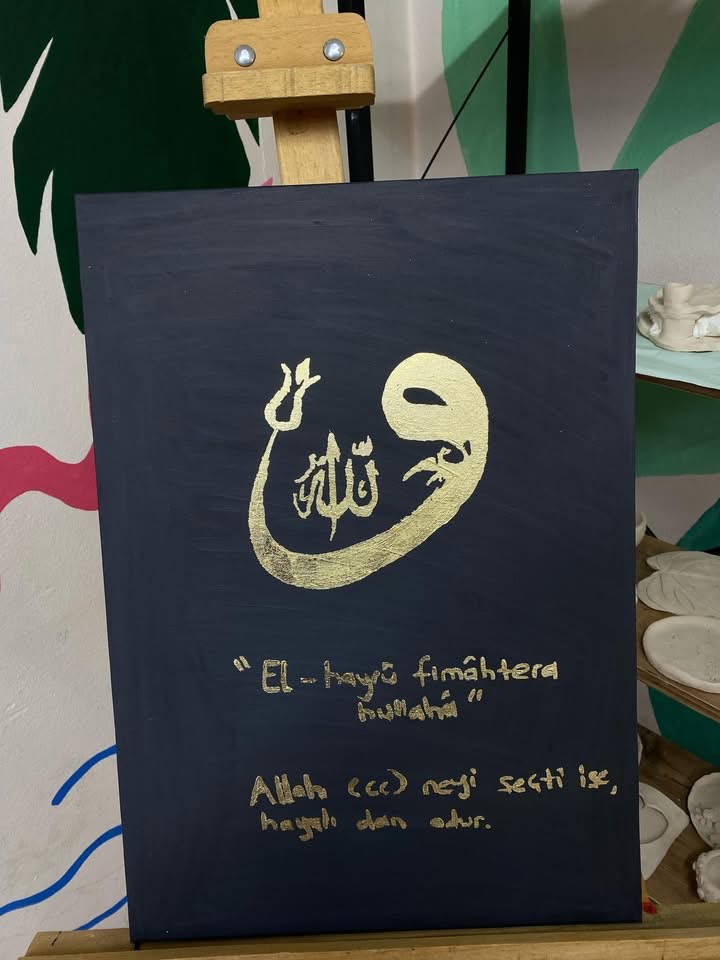 و
الله
"El-hayrû fimâhtera
hullahâ"
Allah (cc) neyi seçti ise,
hayılı dan odur.